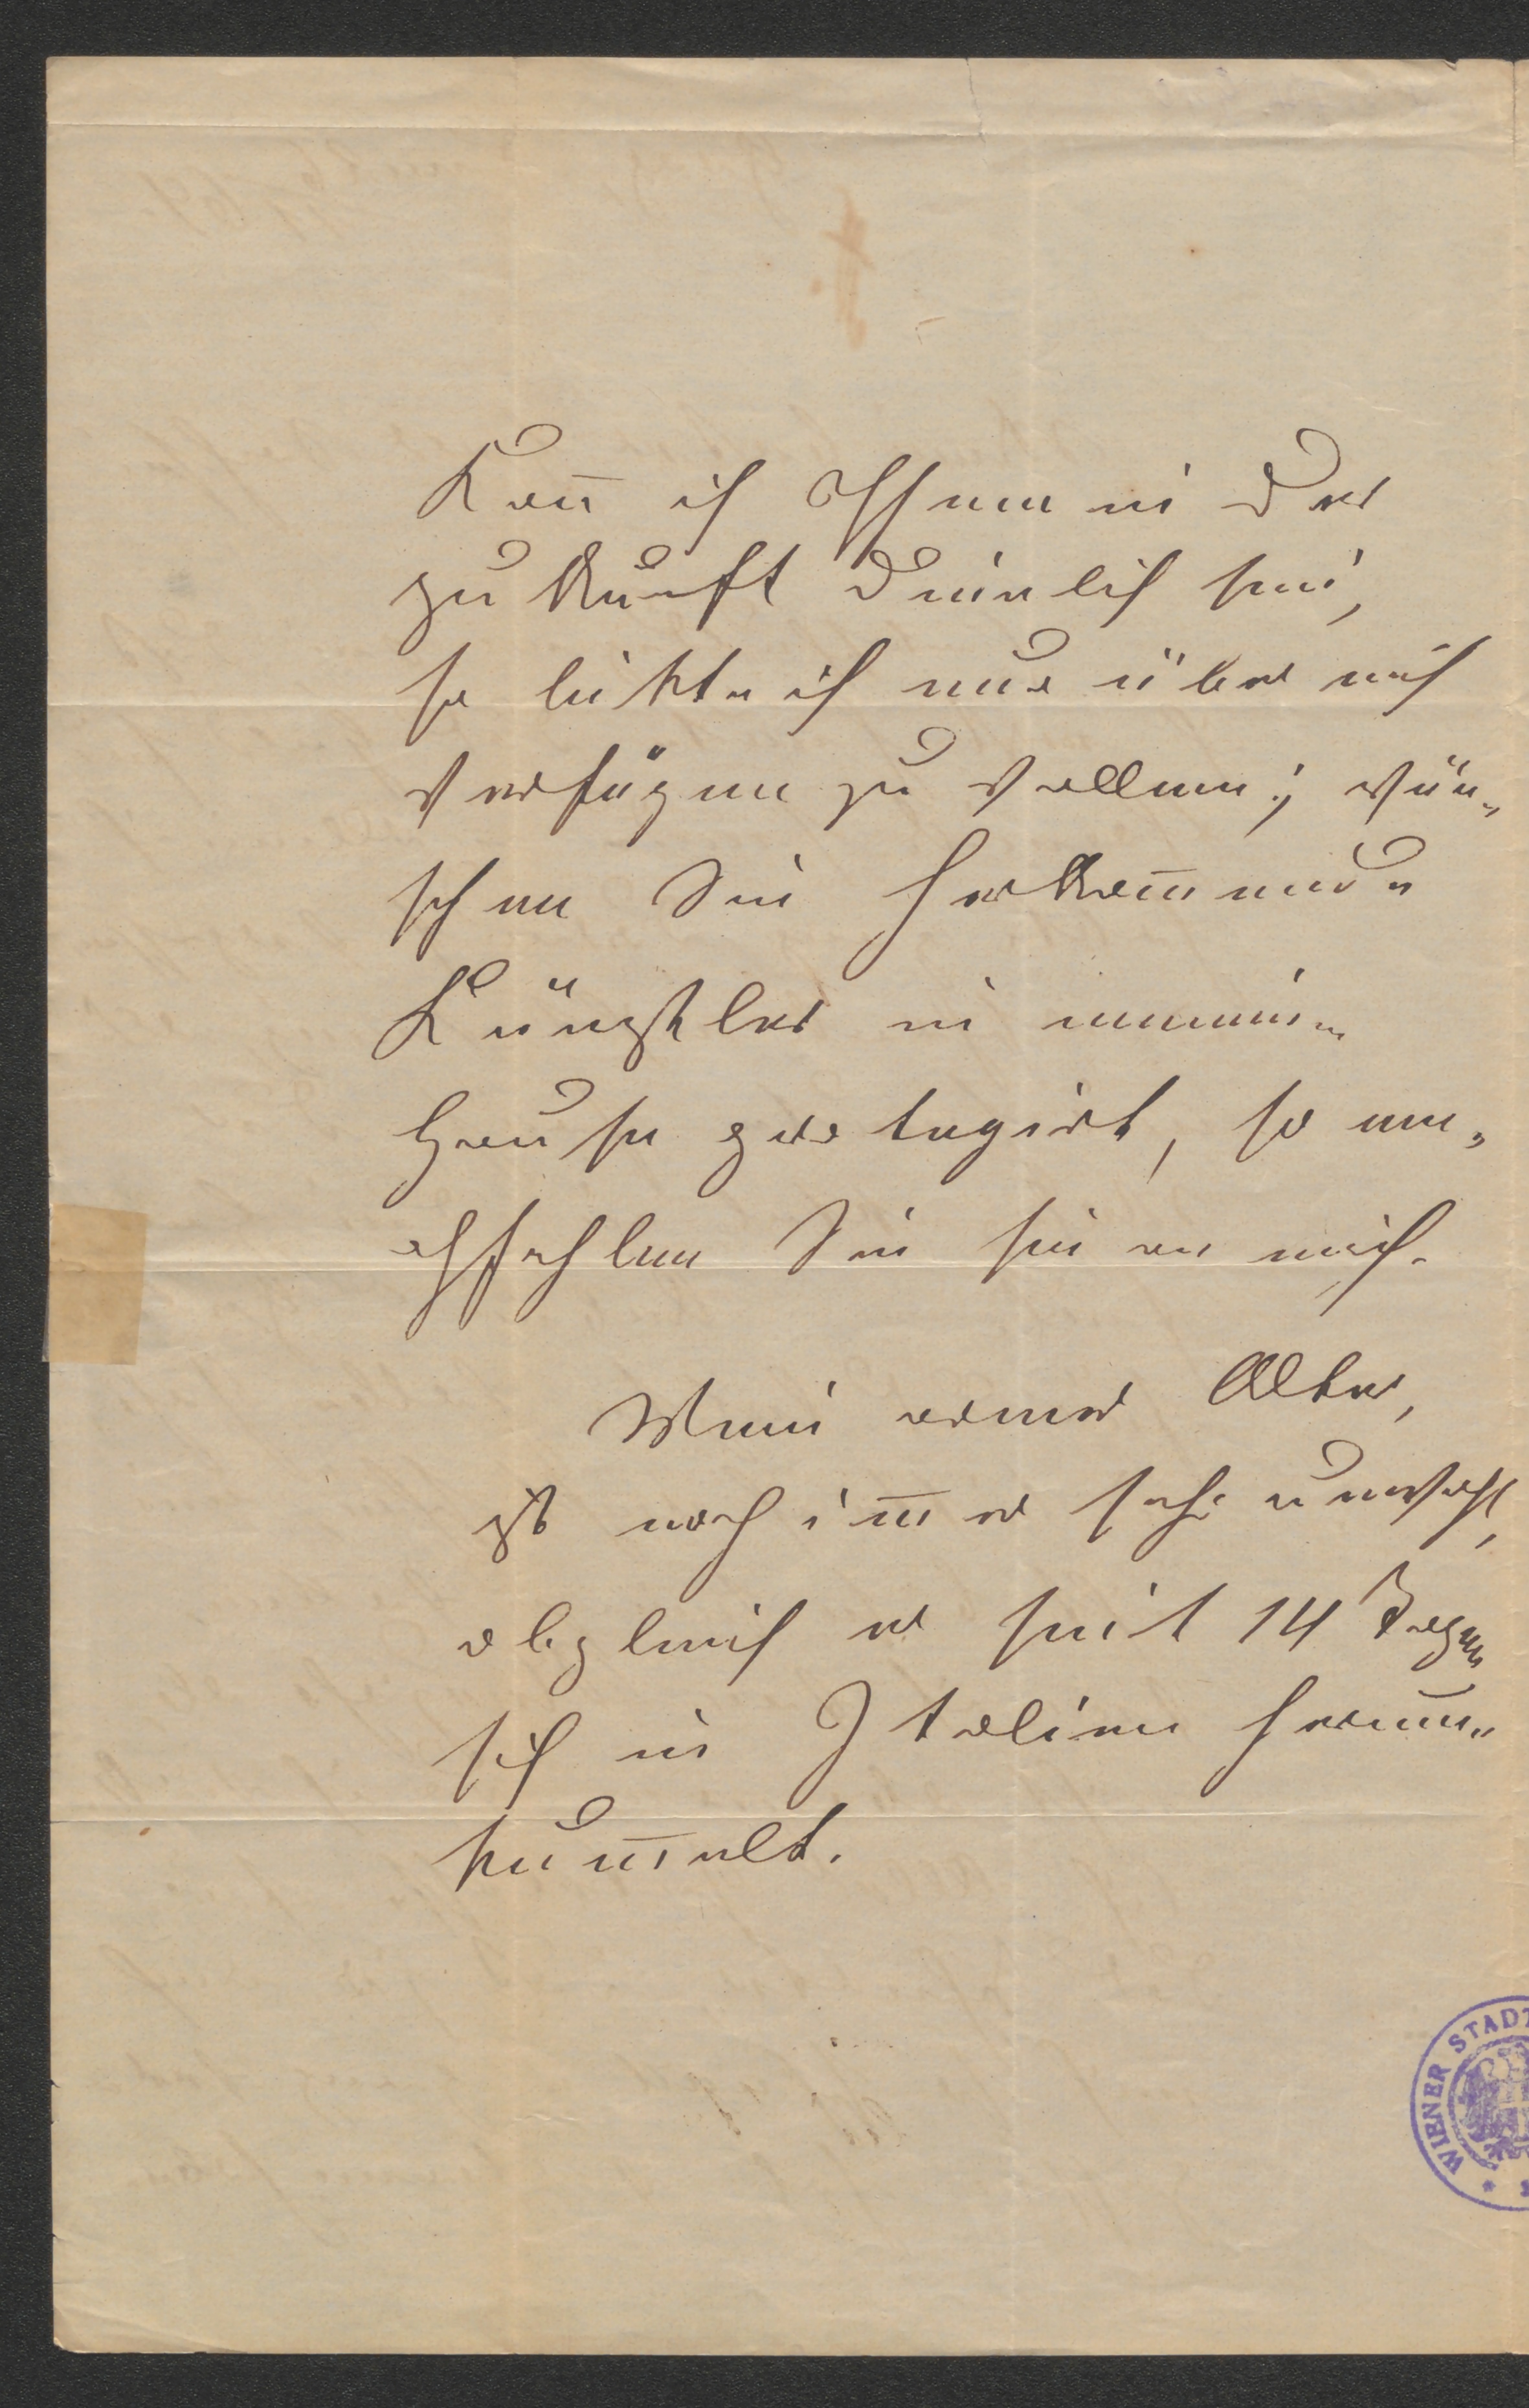 Kan̄ ich Ihnen in der
Zukunft dienlich sein,
so bitte ich nur über mich
verfügen zu wollen; wün„
schen Sie herkom̄ende
Künstler in meinem
Hause protegirt, so em„
pfehlen Sie sie an mich.
Mein armer Alter,
ist noch im̄er sehr unwohl,
obgleich er seit 14 Tagen
sich in Italien herum„
tum̄elt.
WIENER STADT